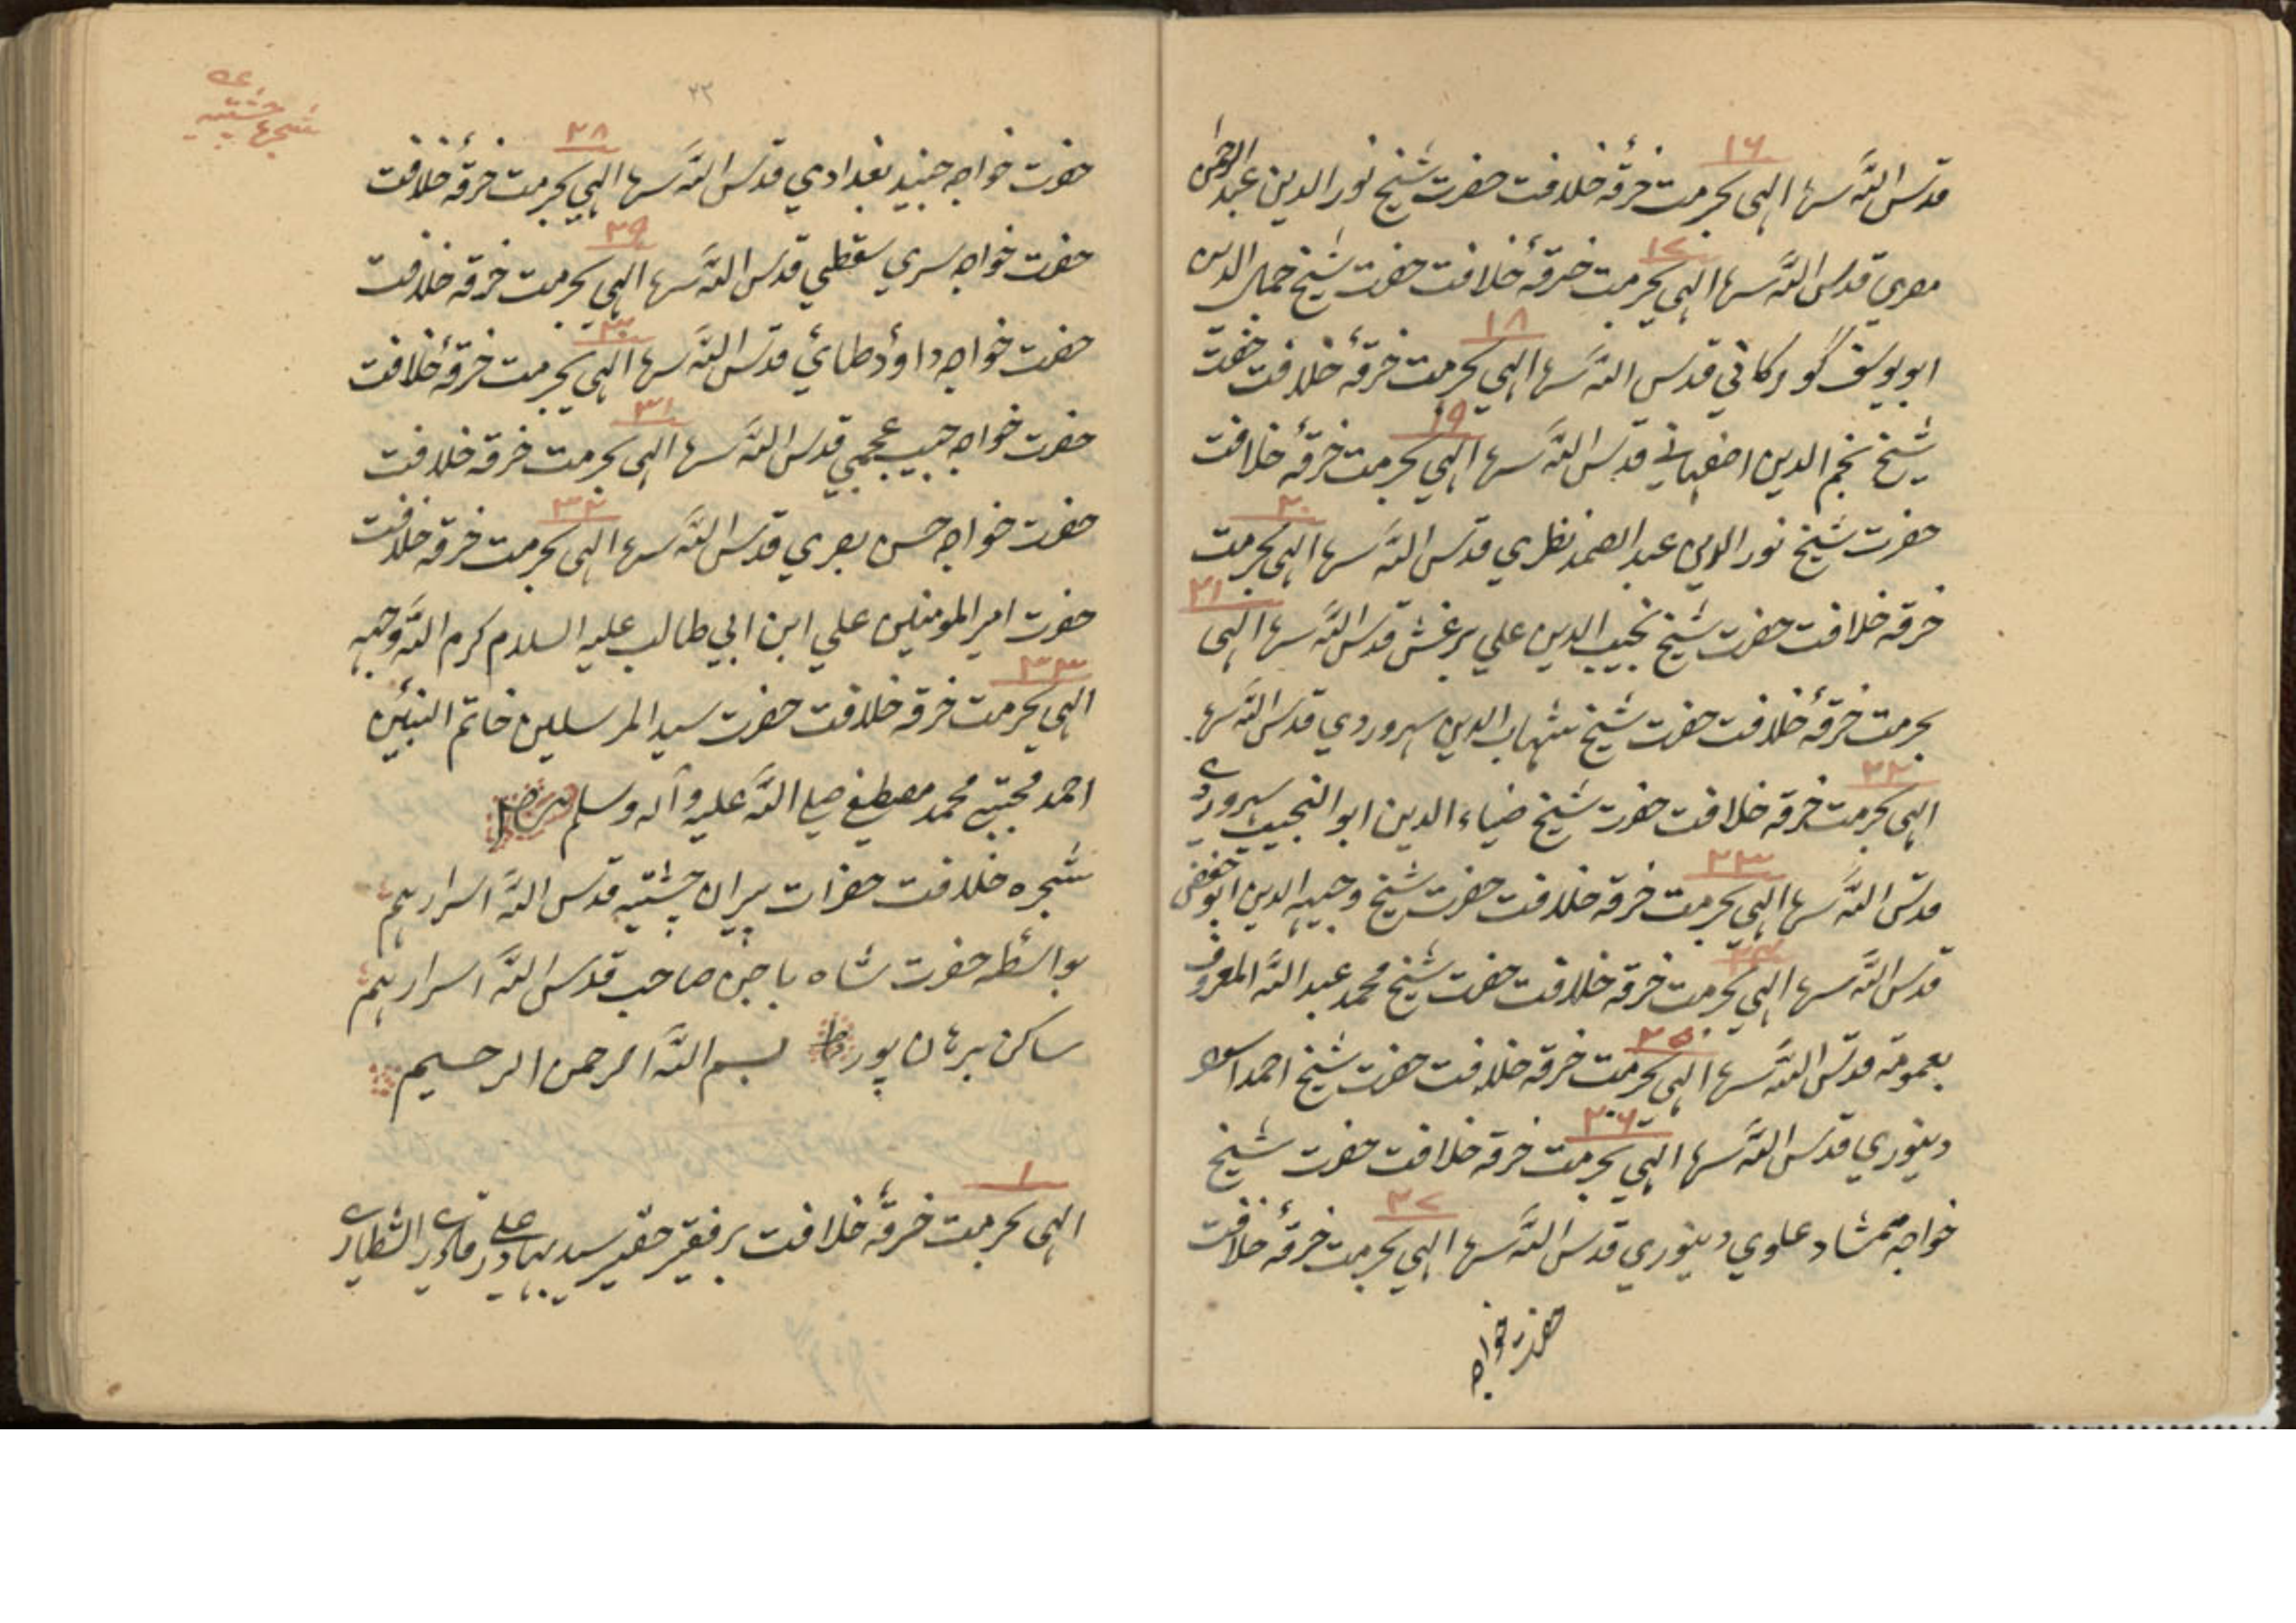 ۱۶
قدس الله سره الهی بحرمت خرقهٔ خلافت حضرت شیخ نور الدین عبد الرحمن
۱۷
مصري قدس الله سره الهي بحرمت خرقهٔ خلافت حضرت شیخ جمال الدین
۱۸
ابو یوسف گورکاني قدس الله سره الهي بحرمت خرقهٔ خلافت حضرت
۱۹
شیخ نجم الدین اصفهاني قدس الله سره الهي بحرمت خرقهٔ خلافت
۲۰
حضرت شیخ نور الدین عبد الصمد نطري قدس الله سره الهي بحرمت
۲۱
خرقه خلافت حضرت شیخ نجیب الدین علي برغش قدس الله سره الهی
بحرمت خرقهٔ خلافت حضرت شیخ شهاب الدین سهروردي قدس الله سره
۲۲
الهی بحرمت خرقه خلافت حضرت شیخ ضیاء الدین ابو النجیب سهروردي
۲۳
قدس الله سره الهي بحرمت خرقه خلافت حضرت شیخ وجیهه الدین ابو حفص
۲۴
قدس الله سره الهي بحرمت خرقه خلافت حضرت شیخ محمد عبد الله المعروف
۲۵
بعمویه قدس الله سره الهي بحرمت خرقه خلافت حضرت شیخ احمد اسود
۲۶
دینوري قدس الله سره الهي بحرمت خرقه خلافت حضرت شیخ
۲۷
خواجه ممشاد علوي دینوري قدس الله سره الهي بحرمت خرقهٔ خلافت
حضرت خواجه
۲۳
شجرهاء چشتیه
۲۸
حضرت خواجه جنید بغدادي قدس الله سره الهي بحرمت خرقهٔ خلافت
۲۹
حضرت خواجه سري سقطي قدس الله سره الهي بحرمت خرقه خلافت
۳۰
حضرت خواجه داؤد طائي قدس الله سره الهي بحرمت خرقهٔ خلافت
۳۱
حضرت خواجه حبیب عجمي قدس الله سره الهي بحرمت خرقه خلافت
۳۲
حضرت خواجه حسن بصري قدس الله سره الهی بحرمت خرقه خلافت
حضرت امیر المومنین علي ابن ابي طالب علیه السلام کرم الله وجهه
۳۳
الهي بحرمت خرقه خلافت حضرت سید المرسلین خاتم النبیین
احمد مجتبے محمد مصطفے صلے الله علیه وآله وسلم
شجره خلافت حضرات پیران چشتیه قدس الله اسرارهم
بواسطه حضرت شاه باجن صاحب قدس الله اسرارهم
ساکن برهان پور بسم الله الرحمن الرحیم
۱
الهی بحرمت خرقهٔ خلافت برفقیر حقیر سید بهادر علي قادري الشطاري